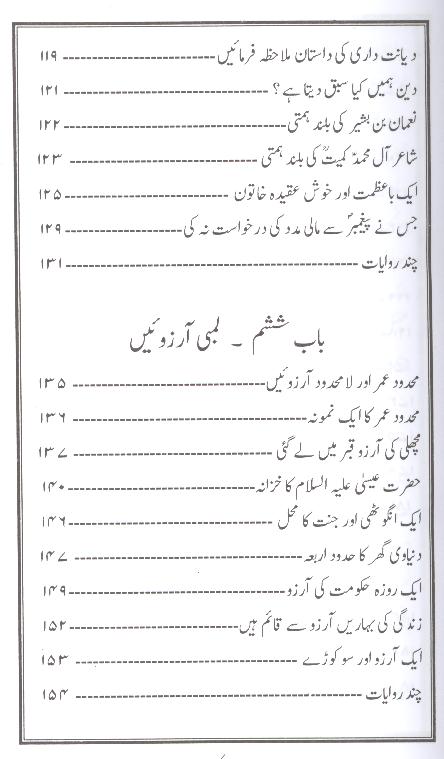 دیانت داری کی داستان ملاحظہ فرمائیں ۱۱۹
دین ہمیں کیا سبق دیتا ہے؟ ۱۲۱
نعمان بن بشیر کی بلند ہمتی ۱۲۲
شاعر آل محمدؐ کمیتؒ کی بلند ہمتی ۱۲۳
ایک باعظمت اور خوش عقیدہ خاتون ۱۲۵
جس نے پیغمبرؐ سے مالی مدد کی درخواست نہ کی ۱۲۹
چند روایات ۱۳۱
باب ششم ۔ لمبی آرزوئیں
محدود عمر اور لا محدود آرزوئیں ۱۳۵
محدود عمر کا ایک نمونہ ۱۳۶
مچھلی کی آرزو قبر میں لے گئی ۱۳۷
حضرت عیسیٰ علیہ السلام کا خزانہ ۱۴۰
ایک انگوٹھی اور جنت کا محل ۱۴۶
دنیاوی گھر کا حدود اربعہ ۱۴۷
ایک روزہ حکومت کی آرزو ۱۴۹
زندگی کی بہاریں آرزو سے قائم ہیں ۱۵۲
ایک آرزو اور سو کوڑے ۱۵۳
چند روایات ۱۵۴